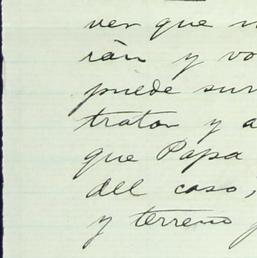 ver que
rán y vo
puede sur
tratar y a
que Papa
del caso,
y terreno